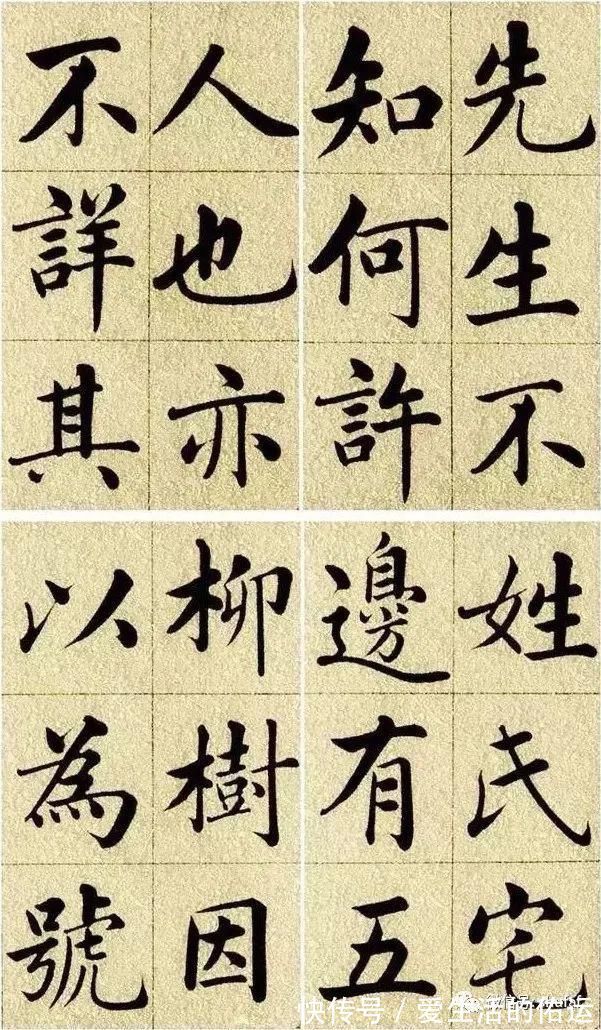 先生不
知何許
人也亦
不詳其
姓氏宅
邊有五
柳樹因
以為號
快传号 / 爱生活的佑运